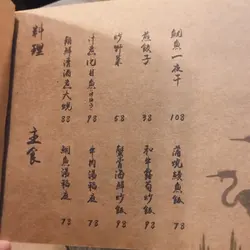 料理
清酒煮大蜆
88
汁煮比目魚
98
炒野菜
58
煎餃子
38
鯛魚一夜干
108
主食
鯛魚湯稻庭
72
牛肉湯稻庭
72
蟹膏海鮮炒飯
92
和牛露筍炒飯
92
蒲燒鰻魚飯
78